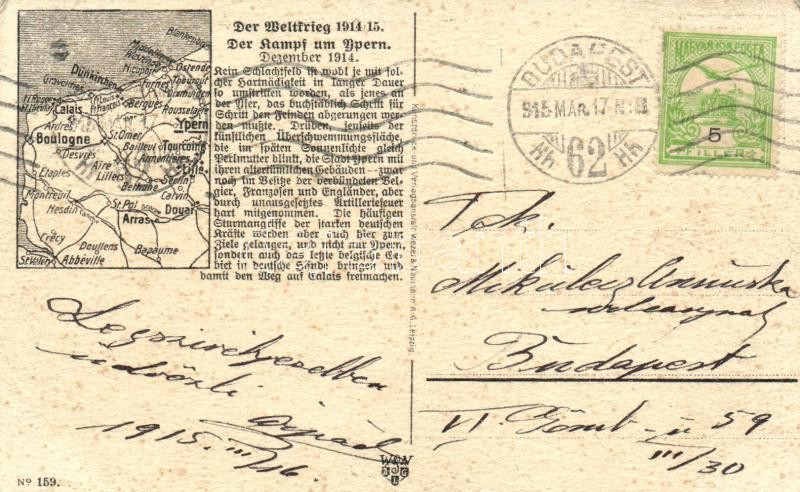 Der Weltkrieg 1914/15.
Der Kampf um Ypern.
Dezember 1914.
Kein Schlachtfeld ist wohl je mit sol-
cher Hartnäckigkeit in langer Dauer
so umstritten worden, als jenes an
der Yser, das buchstäblich Schritt für
Schritt den Feinden abgerungen wer-
den mußte. Drüben, jenseits der
künstlichen Überschwemmungsfläche,
die im späten Sonnenlichte gleich
Perlmutter blinkt, die Stadt Ypern mit
ihren altertümlichen Gebäuden – zwar
noch im Besitze der verbündeten Bel-
gier, Franzosen und Engländer, aber
durch unausgesetztes Artilleriefeuer
hart mitgenommen. Die häufigen
Sturmangriffe der starken deutschen
Kräfte werden aber auch hier zum
Ziele gelangen, und nicht nur Ypern,
sondern auch das letzte belgische Ge-
biet in deutsche Hände bringen und
damit den Weg auf Calais freimachen.
Blankenbghe
Middelkerke
Nieuport
Ostende
Thourout
Dünkirchen
Furnes
Dixmuiden
Gravelines
Bergues
Rousselaere
Calais
Ypern
Ardres
St.Omer
Boulogne
Bailleul
Tourcoing
Desvres
Aire
Armentières
Lille
Etaples
Lillers
Bethune
Carvin
Montreuil
St.Pol
Douai
Hesdin
Arras
Crécy
Doullens
Bapaume
St.Valery
Abbéville
BUDAPEST
915 MÁR. 17
62
MAGYAR KIR. POSTA
5
FILLÉR
Tek.
Mikulecz Annuska
Budapest
VI. Gömb-u 59
III/30
üdvözli
Árpád
1915. III/16.
W&N
No 159.